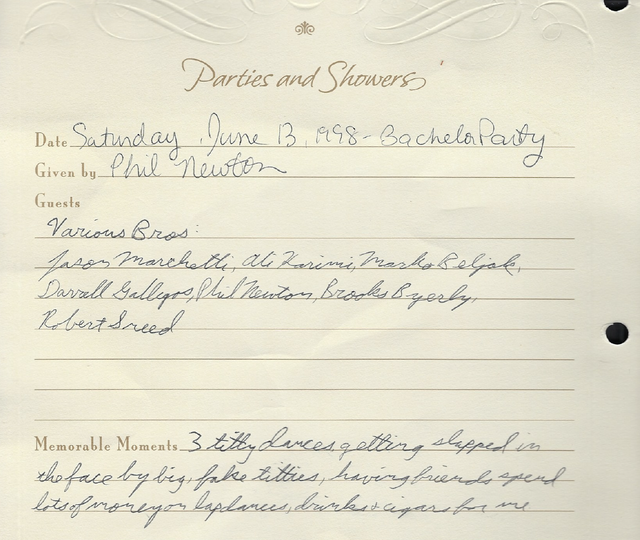 Parties and Showers
Date Saturday, June 13, 1998 - Bachelor Party
Given by Phil Newton
Guests
Various Bros:
Jason Marchetti, Ali Karimi, Marko Beljak,
Davall Gallegos, Phil Newton, Brooks Byerly,
Robert Sreed
Memorable Moments 3 titty dances, getting slapped in
the face by big, fake titties, having friends spend
lots of money on lapdances, drinks + cigars for me